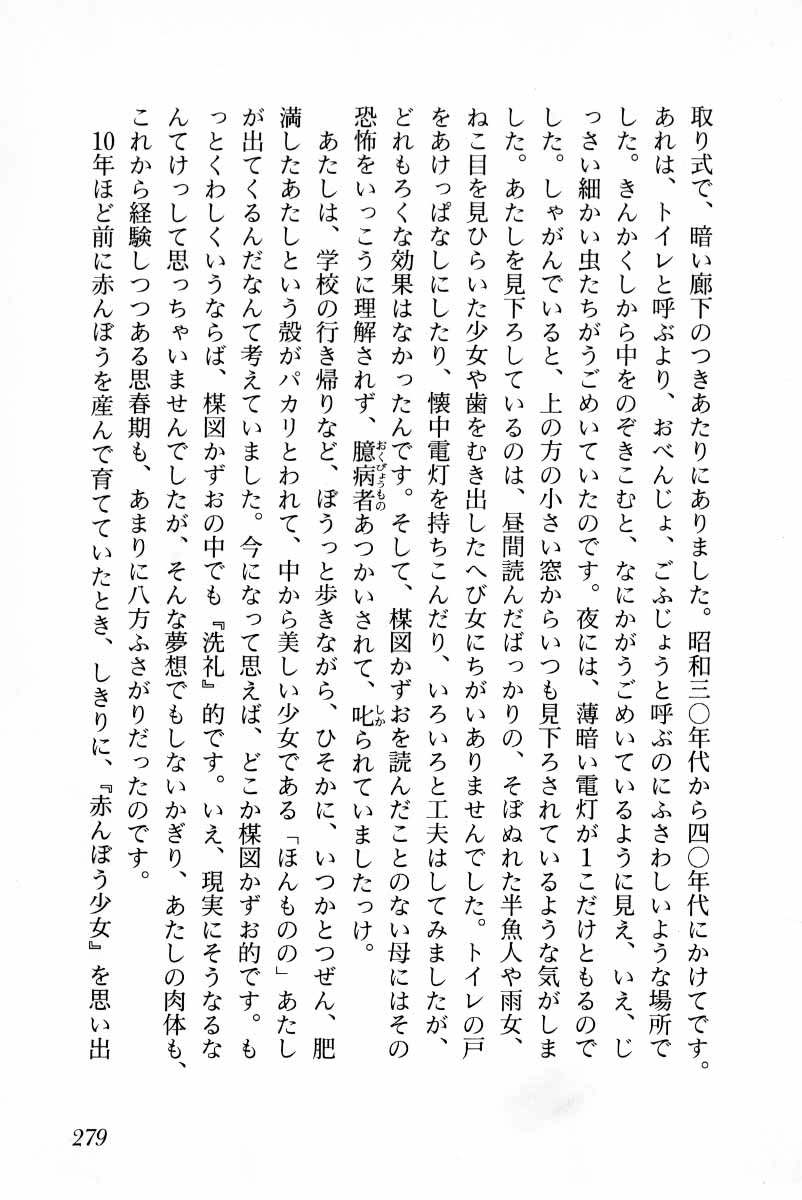 取り式で、暗い廊下のつきあたりにありました。昭和三〇年代から四〇年代にかけてです。
あれは、トイレと呼ぶより、おべんじょ、ごふじょうと呼ぶのにふさわしいような場所で
した。きんかくしから中をのぞきこむと、なにかがうごめいているように見え、いえ、じ
っさい細かい虫たちがうごめいていたのです。夜には、薄暗い電灯が１こだけともるので
した。しゃがんでいると、上の方の小さい窓からいつも見下ろされているような気がしま
した。あたしを見下ろしているのは、昼間読んだばっかりの、そぼぬれた半魚人や雨女、
ねこ目を見ひらいた少女や歯をむき出したへび女にちがいありませんでした。トイレの戸
をあけっぱなしにしたり、懐中電灯を持ちこんだり、いろいろと工夫はしてみましたが、
どれもろくな効果はなかったんです。そして、楳図かずおを読んだことのない母にはその
恐怖をいっこうに理解されず、臆病者あつかいされて、叱られていましたっけ。
おくびょうもの
しか
あたしは、学校の行き帰りなど、ぼうっと歩きながら、ひそかに、いつかとつぜん、肥
満したあたしという殻がパカリとわれて、中から美しい少女である「ほんものの」あたし
が出てくるんだなんて考えていました。今になって思えば、どこか楳図かずお的です。も
っとくわしくいうならば、楳図かずおの中でも『洗礼』的です。いえ、現実にそうなるな
んてけっして思っちゃいませんでしたが、そんな夢想でもしないかぎり、あたしの肉体も、
これから経験しつつある思春期も、あまりに八方ふさがりだったのです。
10年ほど前に赤んぼうを産んで育てていたとき、しきりに、『赤んぼう少女』を思い出
279